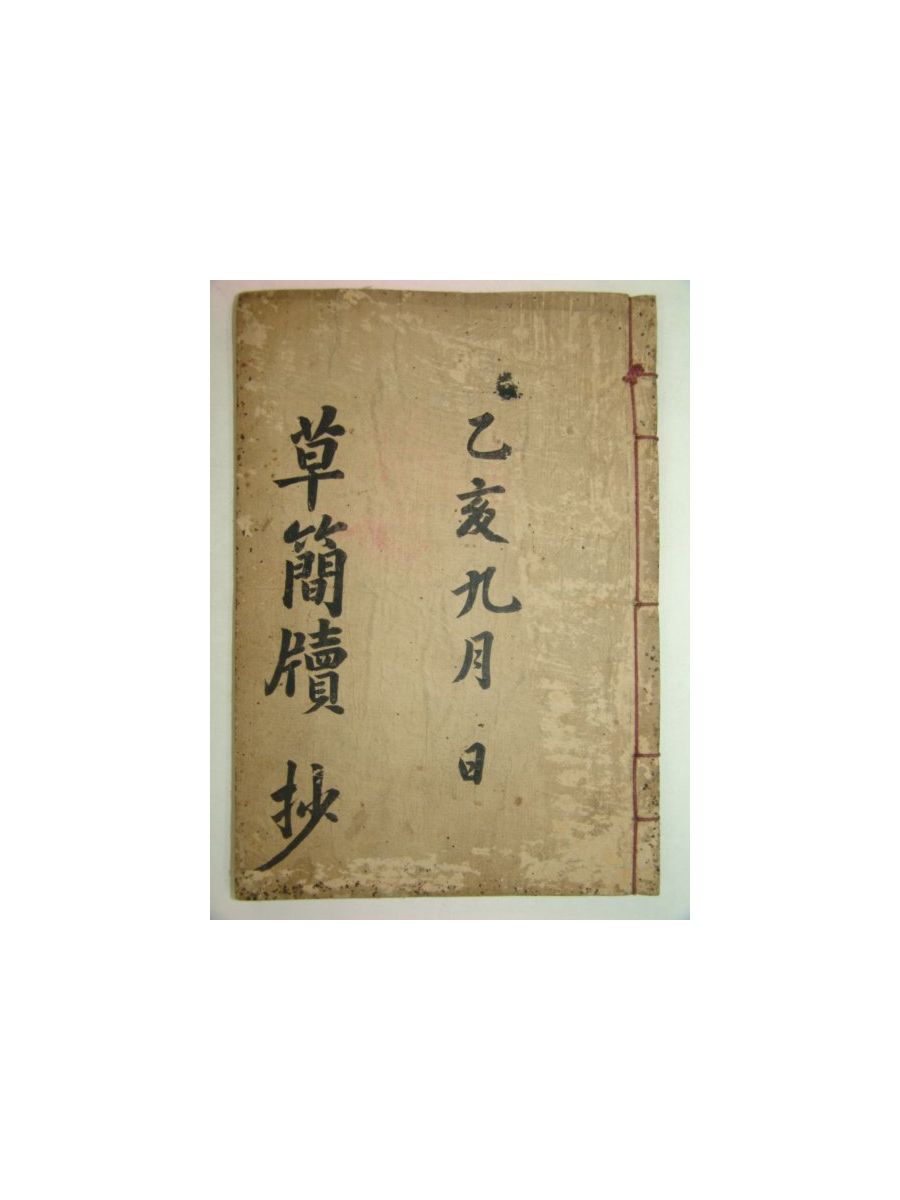 乙亥九月 日
草簡牘 抄